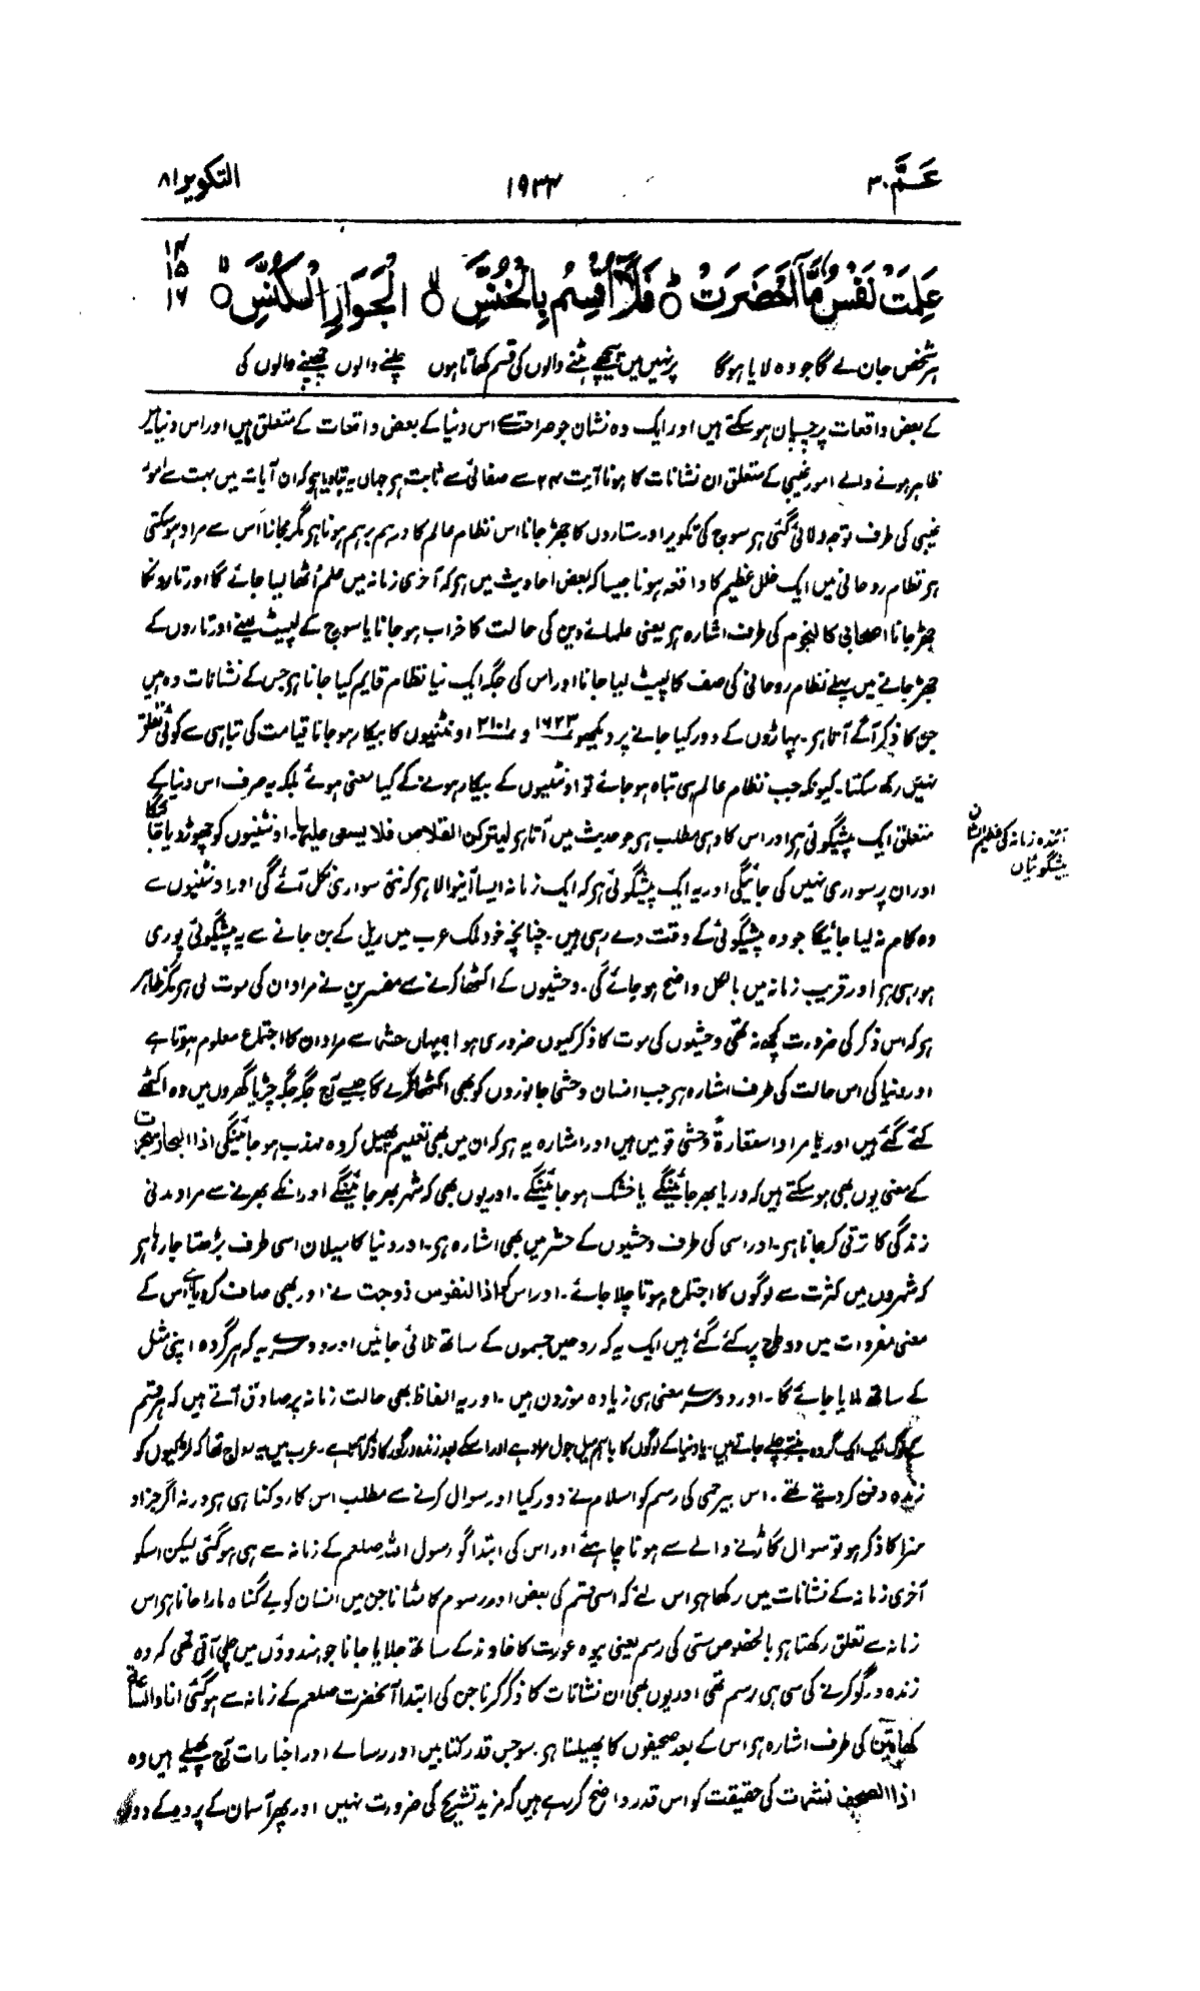 عَمَّ ۳۰
۱۹۳۴
التکویر ۸۱
عَلِمَتْ نَفْسٌ مَّآ اَحْضَرَتْ ۝ فَلَآ اُقْسِمُ بِالْخُنَّسِ ۝ الْجَوَارِ الْكُنَّسِ ۝
۱۴
۱۵
۱۶
ہر شخص جان لے گا جو وہ لایا ہوگا پر نہیں میں پیچھے ہٹنے والوں کی قسم کھاتا ہوں چلنے والوں چھپنے والوں کی
کے بعض واقعات پر چسپاں ہو سکتے ہیں اور ایک وہ نشان جو صراحت سے اس دنیا کے بعض واقعات کے متعلق ہیں اور اس دنیا میں
ظاہر ہونے والے امور غیبی کے متعلق ان نشانات کا ہونا آیت ۲۴ سے صفائی سے ثابت ہو جہاں یہ بتا دیا ہو کہ ان آیات میں بہت سے امور
غیبی کی طرف توجہ دلائی گئی ہو سورج کی تکویر اور ستاروں کا جھڑ جانا اس نظام عالم کا درہم برہم ہونا ہو مگر مجازاً اس سے مراد ہو سکتی
ہو نظام روحانی میں ایک خلل عظیم کا واقعہ ہونا جیسا کہ بعض احادیث میں ہو کہ آخری زمانہ میں علم اُٹھا لیا جائے گا اور تاروں کا
جھڑ جانا اصحابی کالنجوم کی طرف اشارہ ہو یعنی علمائے دین کی حالت کا خراب ہو جانا یا سورج کے لپیٹ لینے اور تاروں کے
جھڑ جانے میں پہلے نظام روحانی کی صف کا لپیٹ لیا جانا اور اس کی جگہ ایک نیا نظام قایم کیا جانا ہو جس کے نشانات وہ ہیں
جن کا ذکر آگے آتا ہو۔ پہاڑوں کے دور کیا جانے پر دیکھو ۱۶۲۳ و ۲۱۰۱ اونٹنیوں کا بیکار ہو جانا قیامت کی تباہی سے کوئی تعلق
نہیں رکھ سکتا۔ کیونکہ جب نظام عالم ہی تباہ ہو جائے تو اونٹنیوں کے بیکار ہونے کے کیا معنی ہوئے بلکہ یہ صرف اس دنیا کے
متعلق ایک پیشگوئی ہو اور اس کا وہی مطلب ہو جو حدیث میں آتا ہو لیترکن القلاص فلا یسعی علیها۔ اونٹنیوں کو چھوڑ دیا جائیگا
آئندہ زمانہ کی عظیم الشان
پیشگوئیاں
اور ان پر سواری نہیں کی جائیگی اور یہ ایک پیشگوئی ہو کہ ایک زمانہ ایسا آنیوالا ہو کہ نئی سواری نکل آئے گی اور اونٹنیوں سے
وہ کام نہ لیا جائیگا جو وہ پیشگوئی کے وقت دے رہی ہیں۔ چنانچہ خود ملک عرب میں ریل کے بن جانے سے یہ پیشگوئی پوری
ہو رہی ہو اور قریب زمانہ میں بالکل واضح ہو جائے گی۔ وحشیوں کے اکٹھا کرنے سے مفسرین نے مراد ان کی موت لی ہو مگر ظاہر
ہو کہ اس ذکر کی ضرورت کچھ نہ تھی وحشیوں کی موت کا ذکر کیوں ضروری ہوا؟ یہاں حشر سے مراد ان کا اجتماع معلوم ہوتا ہے
اور دنیا کی اس حالت کی طرف اشارہ ہو جب انسان وحشی جانوروں کو بھی اکٹھا کرے گا جیسے آج جگہ جگہ چڑیا گھروں میں وہ اکٹھے
کئے گئے ہیں اور یا مراد استعارۃً وحشی قومیں ہیں اور اشارہ یہ ہو کہ ان میں بھی تعلیم پھیل کر وہ مہذب ہو جائینگی اذا البحار سجرت
کے معنی یوں بھی ہو سکتے ہیں کہ دریا بھر جائینگے یا خشک ہو جائینگے۔ اور یوں بھی کہ شہر بھر جائینگے اور انکے بھرنے سے مراد مدنی
زندگی کا ترقی کر جانا ہو۔ اور اسی کی طرف وحشیوں کے حشر میں بھی اشارہ ہو۔ اور دنیا کا میلان اسی طرف بڑھتا جا رہا ہو
کہ شہروں میں کثرت سے لوگوں کا اجتماع ہوتا چلا جائے۔ اور اس کو اذا النفوس زوجت نے اور بھی صاف کر دیا ہے اس کے
معنی مفردات میں دو طرح پر کئے گئے ہیں ایک یہ کہ روحیں جسموں کے ساتھ ملائی جائیں اور دوسرے یہ کہ ہر گروہ اپنی مثل
کے ساتھ ملایا جائے گا۔ اور دوسرے معنی ہی زیادہ موزون ہیں۔ اور یہ الفاظ بھی حالت زمانہ پر صادق آتے ہیں کہ ہر قسم
کے لوگ ایک ایک گروہ بنتے چلے جاتے ہیں۔ یا دنیا کے لوگوں کا باہم میل جول مراد ہے اور اسکے بعد زندہ درگور کا ذکر آتا ہے۔ عرب میں یہ رواج تھا کہ لڑکیوں کو
زندہ دفن کر دیتے تھے۔ اس بیرحمی کی رسم کو اسلام نے دور کیا اور سوال کرنے سے مطلب اس کا روکنا ہی ہو ورنہ اگر جزا و
سزا کا ذکر ہو تو سوال گاڑنے والے سے ہونا چاہئے اور اس کی ابتدا گو رسول اللہ صلعم کے زمانہ سے ہی ہو گئی لیکن اسکو
آخری زمانہ کے نشانات میں رکھا ہو اس لئے کہ اسی قسم کی بعض اور رسوم کا مٹانا جن میں انسان کو بے گناہ مارا جانا ہو اس
زمانہ سے تعلق رکھتا ہو بالخصوص ستی کی رسم یعنی بیوہ عورت کا خاوند کے ساتھ جلایا جانا جو ہندوؤں میں چلی آتی تھی کہ وہ
زندہ درگور کرنے کی سی ہی رسم تھی اور یوں بھی ان نشانات کا ذکر کرنا جن کی ابتدا آنحضرت صلعم کے زمانہ سے ہو گئی انا والساعة
کهاتین کی طرف اشارہ ہو اس کے بعد صحیفوں کا پھیلنا ہو۔ سو جس قدر کتابیں اور رسالے اور اخبارات آج پھیلے ہیں وہ
اذا الصحف نشرت کی حقیقت کو اس قدر واضح کر رہے ہیں کہ مزید تشریح کی ضرورت نہیں اور پھر آسمان کے پردہ کے دور